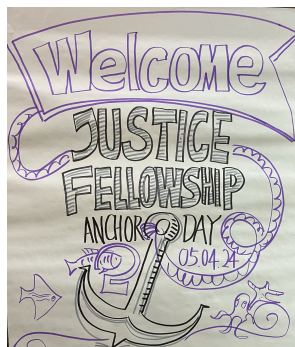 Welcome
JUSTICE
FELLOWSHIP
ANCHOR DAY
05.04.24